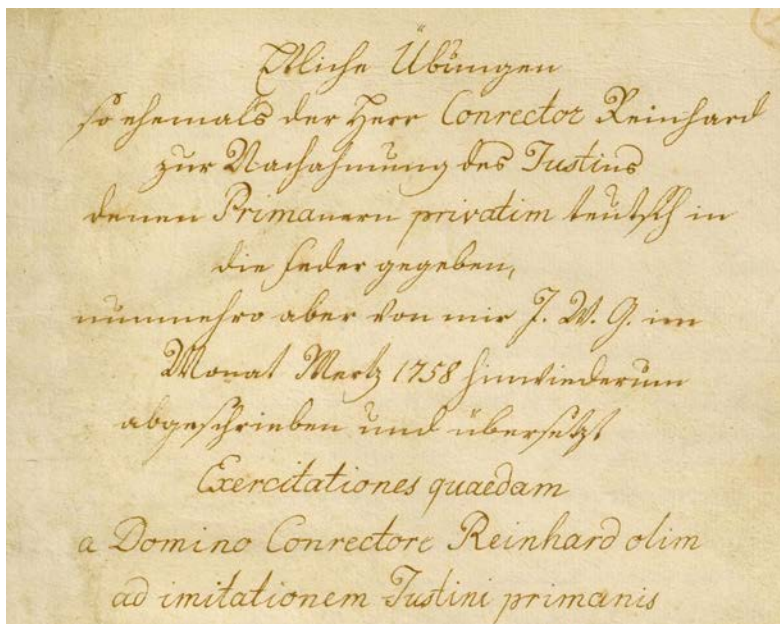 Etliche Übungen
so ehemals der Herr Conrector Reinhard
zur Nachahmung des Justins
denen Primanern privatim teutsch in
die feder gegeben,
nunmehro aber von mir J. W. G. im
Monat Mertz 1758 hinwiederum
abgeschrieben und übersetzt
Exercitationes quaedam
a Domino Conrectore Reinhard olim
ad imitationem Justini primanis